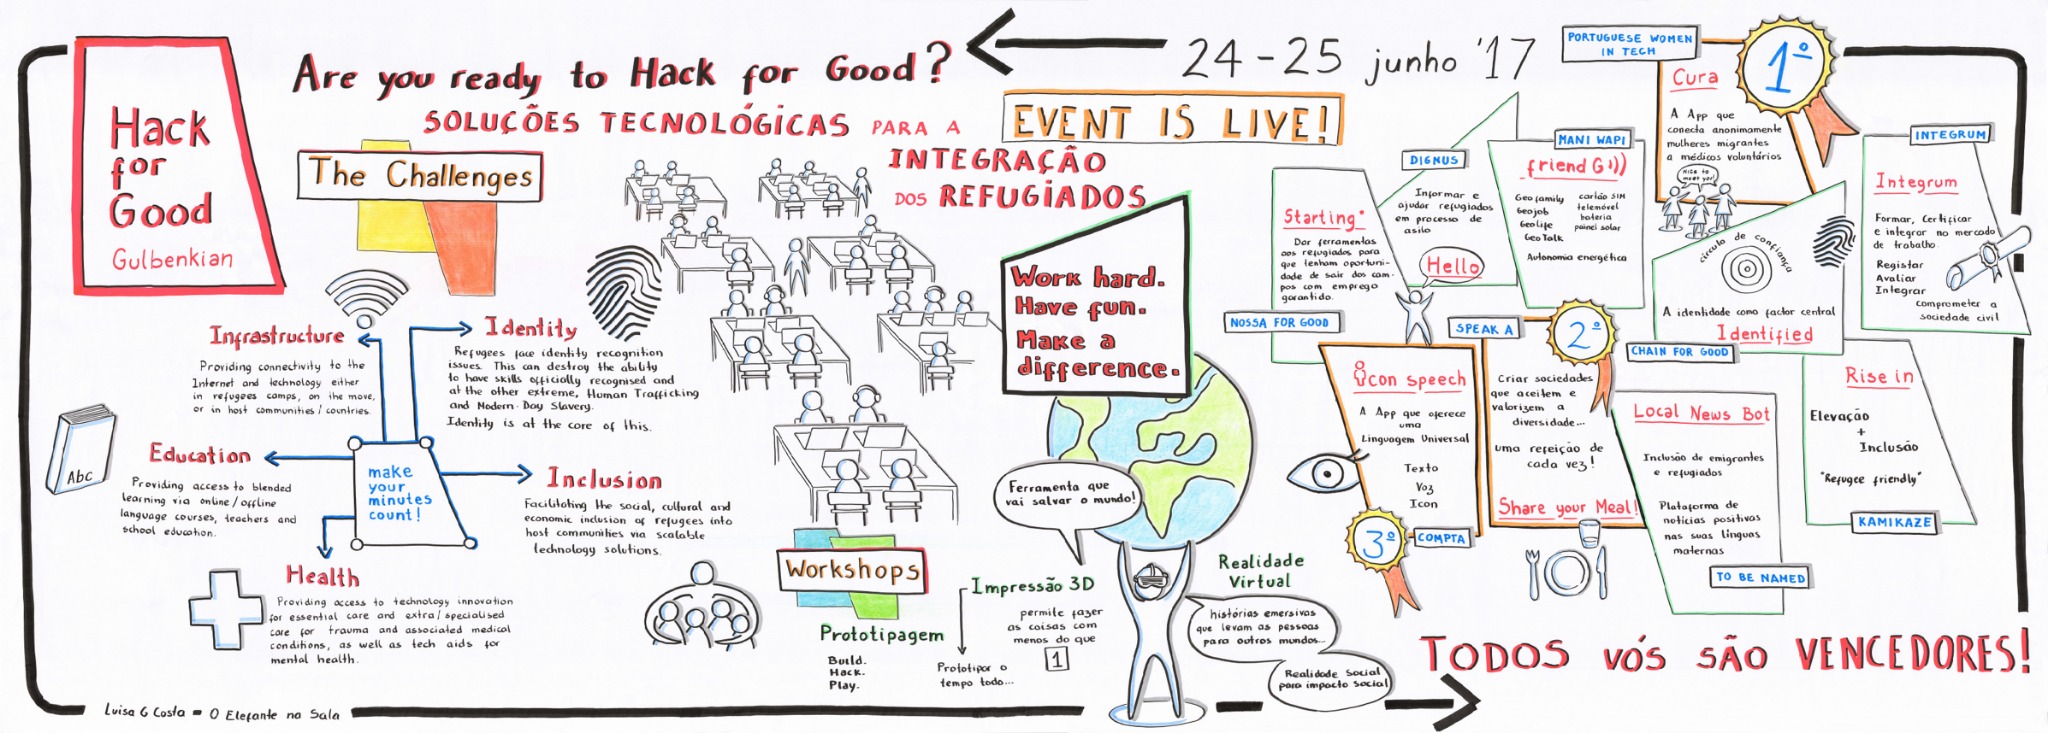 Hack
for
Good
Gulbenkian
Are you ready to Hack for Good?
24-25 junho '17
SOLUÇÕES TECNOLÓGICAS PARA A
INTEGRAÇÃO
DOS REFUGIADOS
EVENT IS LIVE!
The Challenges
Infrastructure
Providing connectivity to the
Internet and technology either
in refugees camps, on the move,
or in host communities/countries.
Identity
Refugees face identity recognition
issues. This can destroy the ability
to have skills officially recognised and
at the other extreme, Human Trafficking
and Modern-Day Slavery.
Identity is at the core of this.
Abc
Education
Providing access to blended
learning via online/offline
language courses, teachers and
school education.
make
your
minutes
count!
Inclusion
Facilitating the social, cultural and
economic inclusion of refugees into
host communities via scalable
technology solutions.
Health
Providing access to technology innovation
for essential care and extra/specialised
care for trauma and associated medical
conditions, as well as tech aids for
mental health.
Work hard.
Have fun.
Make a
difference.
Workshops
Prototipagem
Build.
Hack.
Play.
Impressão 3D
permite fazer
as coisas com
menos do que
1
Prototipar o
tempo todo...
Ferramenta que
vai salvar o mundo!
Realidade
Virtual
histórias emersivas
que levam as pessoas
para outros mundos...
Realidade Social
para impacto social
Starting*
Dar ferramentas
aos refugiados para
que tenham oportuni-
dade de sair dos cam-
pos com emprego
garantido.
NOSSA FOR GOOD
DIGNUS
Informar e
ajudar refugiados
em processo de
asilo
Hello
MANI WAPI
friend G·))
Geofamily
Geojob
Geolife
GeoTalk
cartão SIM
telemóvel
bateria
painel solar
Autonomia energética
PORTUGUESE WOMEN
IN TECH
1º
Cura
A App que
conecta anonimamente
mulheres migrantes
a médicos voluntários
Nice to
meet you!
círculo de confiança
A identidade como factor central
Identified
CHAIN FOR GOOD
INTEGRUM
Integrum
Formar, Certificar
e integrar no mercado
de trabalho.
Registar
Avaliar
Integrar
comprometer a
sociedade civil
Icon speech
A App que oferece
uma
Linguagem Universal
Texto
Voz
Icon
3º
COMPTA
SPEAK A
2º
Criar sociedades
que aceitem e
valorizem a
diversidade...
uma refeição de
cada vez!
Share your Meal!
Local News Bot
Inclusão de emigrantes
e refugiados
Plataforma de
notícias positivas
nas suas línguas
maternas
TO BE NAMED
Rise in
Elevação
+
Inclusão
"Refugee friendly"
KAMIKAZE
TODOS VÓS SÃO VENCEDORES!
Luisa G Costa = O Elefante na Sala